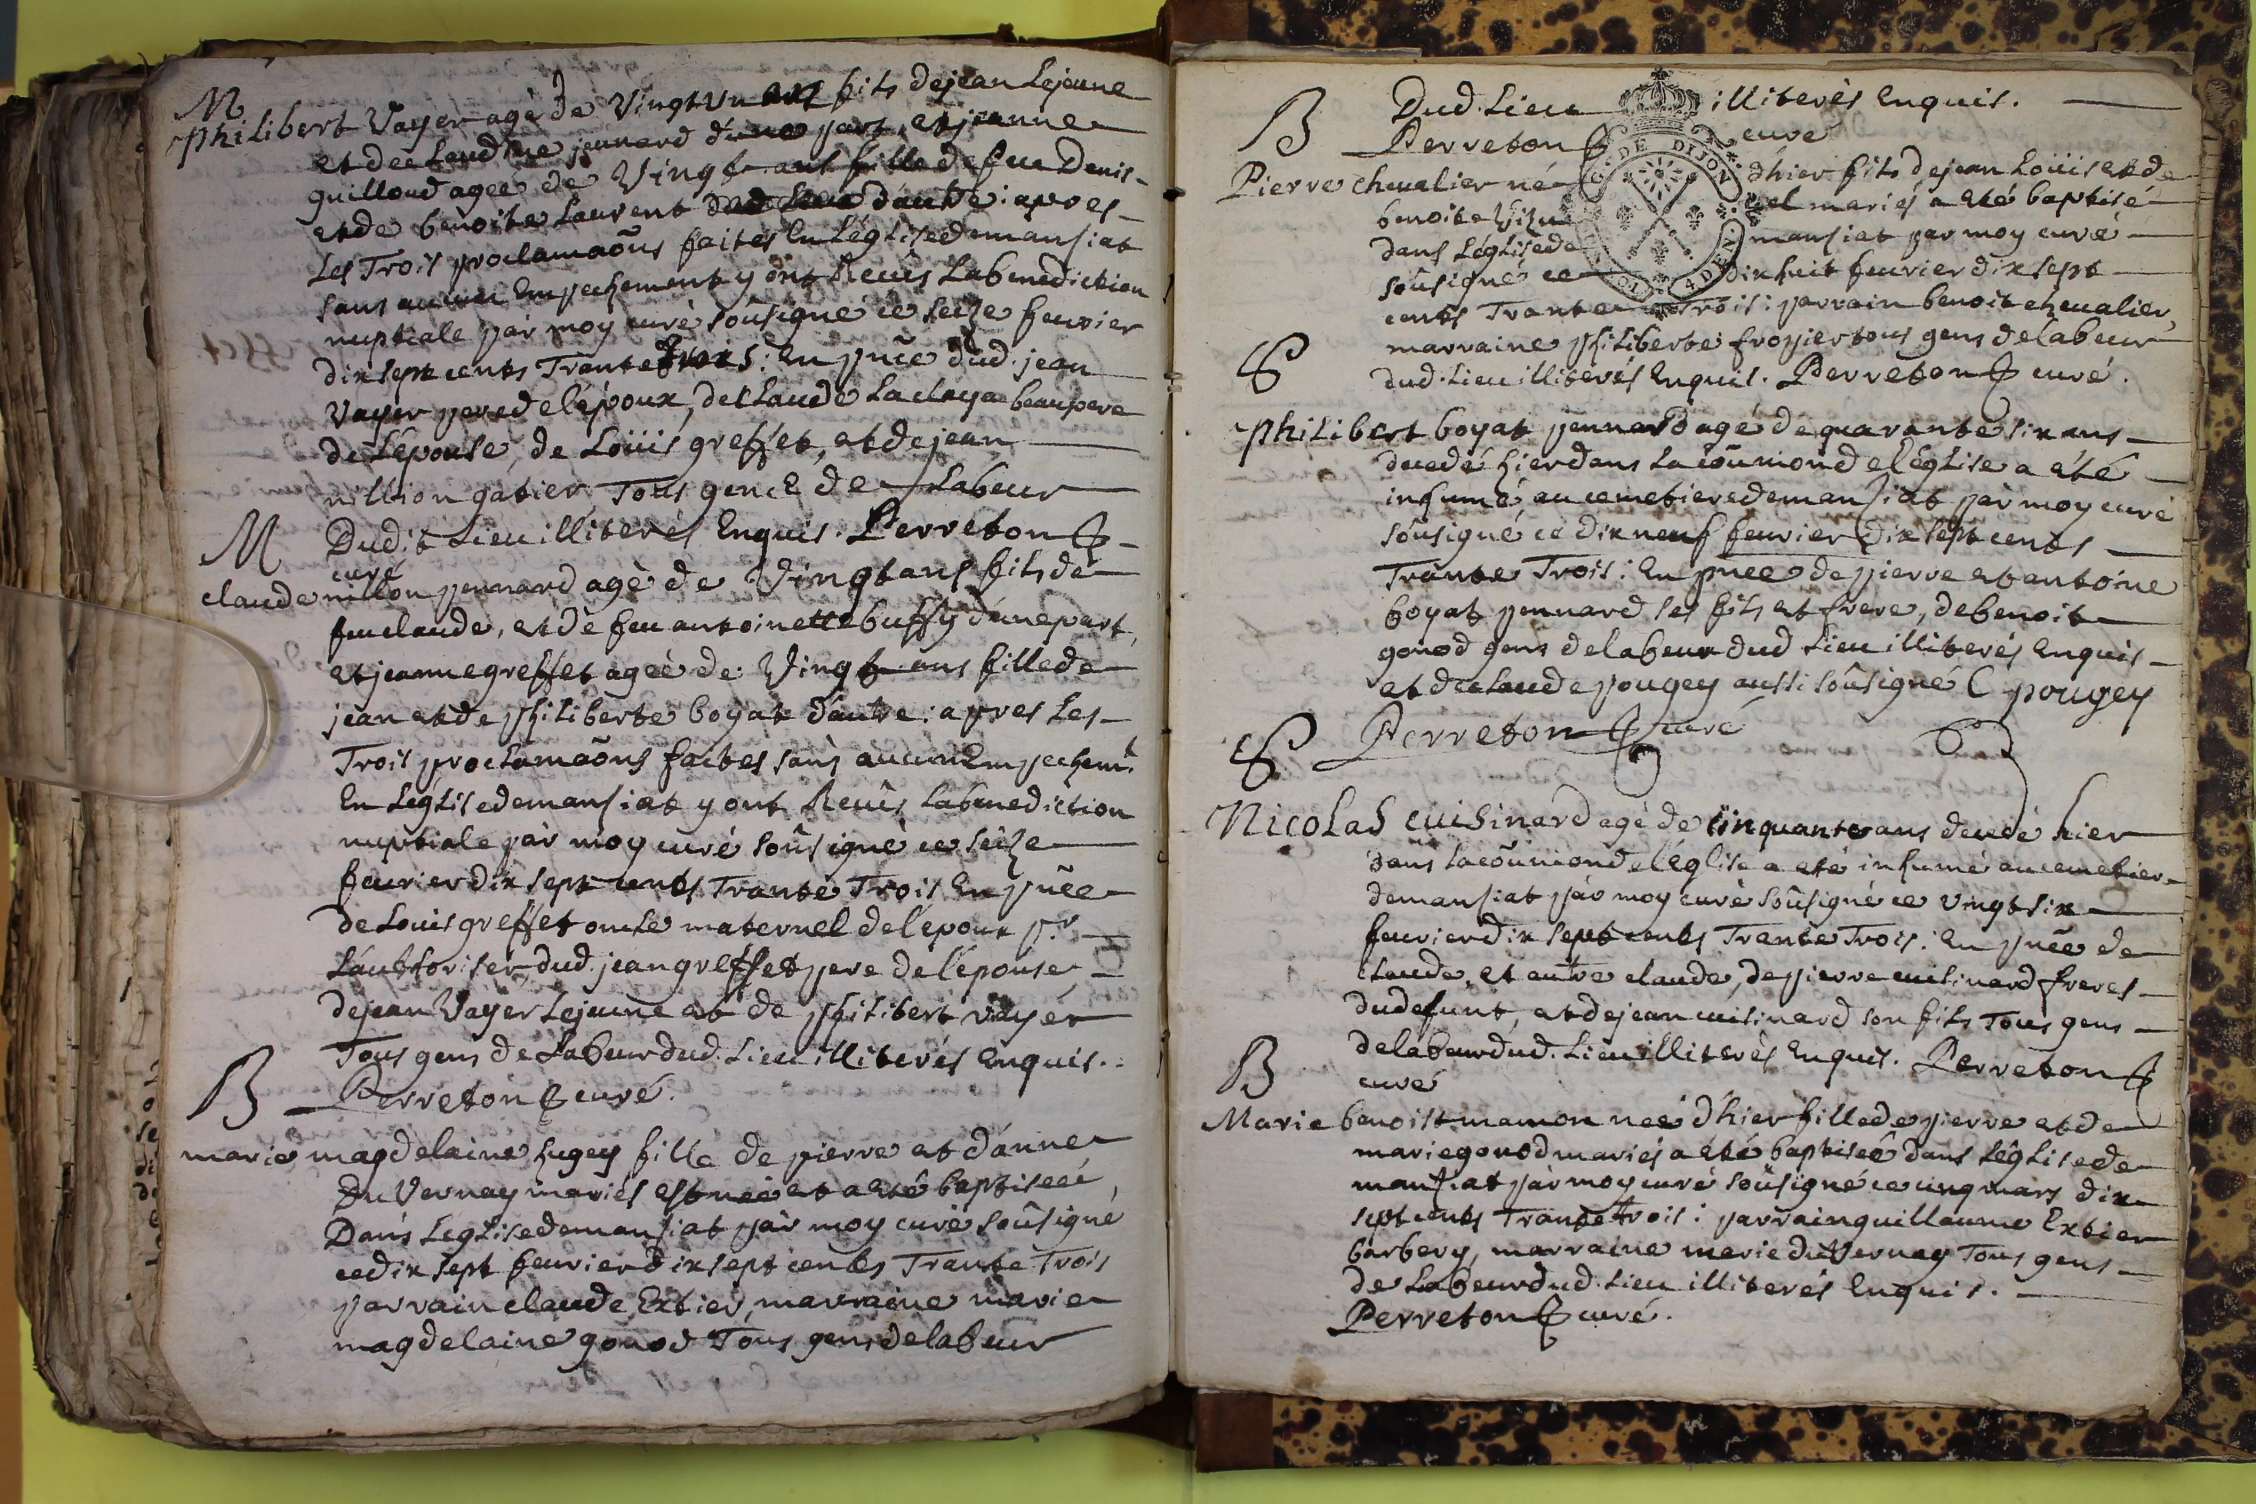 M
Philibert Vayer agé de Vingt un ans fils de jean Lejeune
et de claudine pennard d'une part, et jeanne
guilloud ageé de Vingt ans fille de feu Denis
et de benoite Laurent dud Lieu d'autre : apres
Les Trois proclamaõns faites En Léglise de mansiat
sans aucun Empechement y ont Receûs La benediction
nuptiale par moy curé soûsigné ce seize feuvrier
dix sept cents Trante Trois : En pñce dud. jean
Vayer pere de l'époux, de Claude La claya beaupere
de L'épouse, de Loüis greffet, et de jean
nillion gatier Tous gens de Labeur
Dudit Lieu illiterés Enquis. Perreton
curé
M
claude nillon pennard agé de Vingt ans fils de
feu claude, et dè feu antoinette buffy d'une part,
et jeanne greffet ageé de Vingt ans fille de
jean et de philiberte boyat d'autre : apres Les
Trois proclamaõns faites sans aucun Empechem.t
En Léglise de mansiat y ont Receûs La benediction
nuptiale par moy curé soûsigné ce seize
feuvrier dix sept cents Trante Trois En pñce
de Louis greffet oncle maternel de l'epoux p.r
L'authoriser dud. jean greffet pere de l'épouse,
de jean Vayer Lejeune et de philibert vayer
Tous gens de Labeur dud. Lieu illiterés Enquis.
Perreton curé.
B
marie magdelaine hugey fille de pierre et d'anne
Du Vernay mariés est neé et a eté baptiseé
Dans Léglise de mansiat par moy curé soûsigné
ce dix sept feuvrier dix sept cents Trante Trois
parrain claude Extier, marraine marie
magdelaine gonod Tous gens de labeur
Dud. Lieu illiterés Enquis.
Perreton curé
B
Pierre chevalier né d'hier fils de jean Loüis et de
benoite mariés a eté baptisé
dans Léglise de mansiat par moy curé
soûsigné ce dix huit feuvrier dix sept
cents Trante Trois : parrain benoit chevalier,
marraine philiberte fropier tous gens de labeur
dud. Lieu illiterés Enquis. Perreton curé.
S
Philibert boyat pennard agé de quarante six ans
decedé hier dans la coũnion de l'église a eté
inhumé au cemetiere de mansiat par moy curé
soûsigné ce dix neuf feuvrier dix sept cents
Trante Trois : En pñce de pierre et antoine
boyat pennard ses fils et frere, de benoit
gonod gens de labeur dud Lieu illiterés Enquis
et de claude pougey aussi soûsigné C pougey
Perreton curé
S
Nicolas cuisinard agé de cinquante ans decedé hier
dans la coũnion de l'église a eté inhumé au cemetier
de mansiat par moy curé soûsigné ce vingt six
feuvrier dix sept cents Trante Trois : En pñce de
claude, et autre claude, de pierre cuisinard freres
du defunt, et de jean cuisinard son fils Tous gens
de labeur dud. Lieu illiterés Enquis. Perreton
curé
B
Marie benoist mamon neé d'hier fille de pierre et de
marie gonod mariés a eté baptiseé dans Léglise de
mansiat par moy curé soûsigné ce cinq mars dix
sept cents Trante trois : parrain guillaume Extier
barbery, marraine marie du Vernay Tous gens
de Labeur dud. Lieu illiterés Enquis.
Perreton curé.
G. DE DIJON
4 DEN.